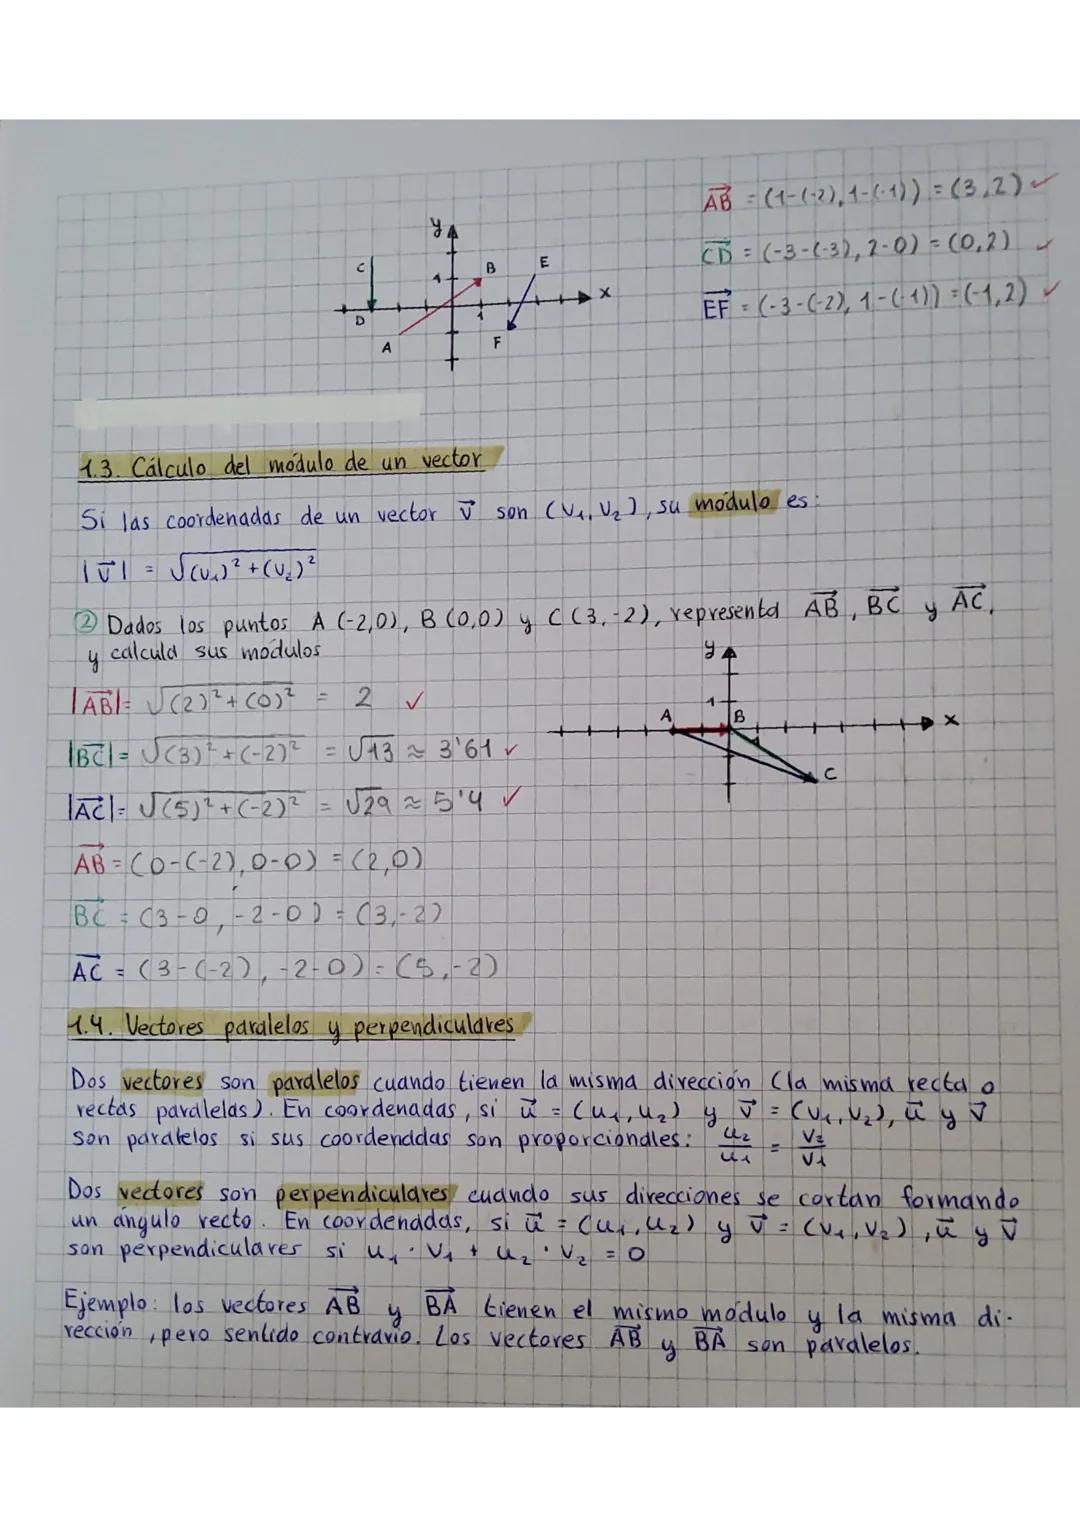 AB = (1-(-2), 1-(-1)) = (3,2) ✓
CD = (-3-(-3), 2-0) = (0,2) ✓
EF = (-3-(-2), 1-(-1)) = (-1,2) ✓
y
C
1
B
E
x
D
1
A
F
1.3. Cálculo del módulo de un vector
Si las coordenadas de un vector v⃗ son (v₁, v₂), su módulo es:
|v⃗| = √(v₁)² + (v₂)²
② Dados los puntos A (-2,0), B (0,0) y C (3,-2), representa AB, BC y AC,
y calcula sus módulos
|AB| = √(2)² + (0)² = 2 ✓
|BC| = √(3)² + (-2)² = √13 ≈ 3'61 ✓
|AC| = √(5)² + (-2)² = √29 ≈ 5'4 ✓
y
1
A
B
x
C
AB = (0-(-2), 0-0) = (2,0)
BC = (3-0, -2-0) = (3,-2)
AC = (3-(-2), -2-0) = (5,-2)
1.4. Vectores paralelos y perpendiculares
Dos vectores son paralelos cuando tienen la misma dirección (la misma recta o
rectas paralelas). En coordenadas, si u⃗ = (u₁, u₂) y v⃗ = (v₁, v₂), u⃗ y v⃗
son paralelos si sus coordenadas son proporcionales: u₂/u₁ = v₂/v₁
Dos vectores son perpendiculares cuando sus direcciones se cortan formando
un ángulo recto. En coordenadas, si u⃗ = (u₁, u₂) y v⃗ = (v₁, v₂), u⃗ y v⃗
son perpendiculares si u₁ · v₁ + u₂ · v₂ = 0
Ejemplo: los vectores AB y BA tienen el mismo módulo y la misma di-
rección, pero sentido contrario. Los vectores AB y BA son paralelos.